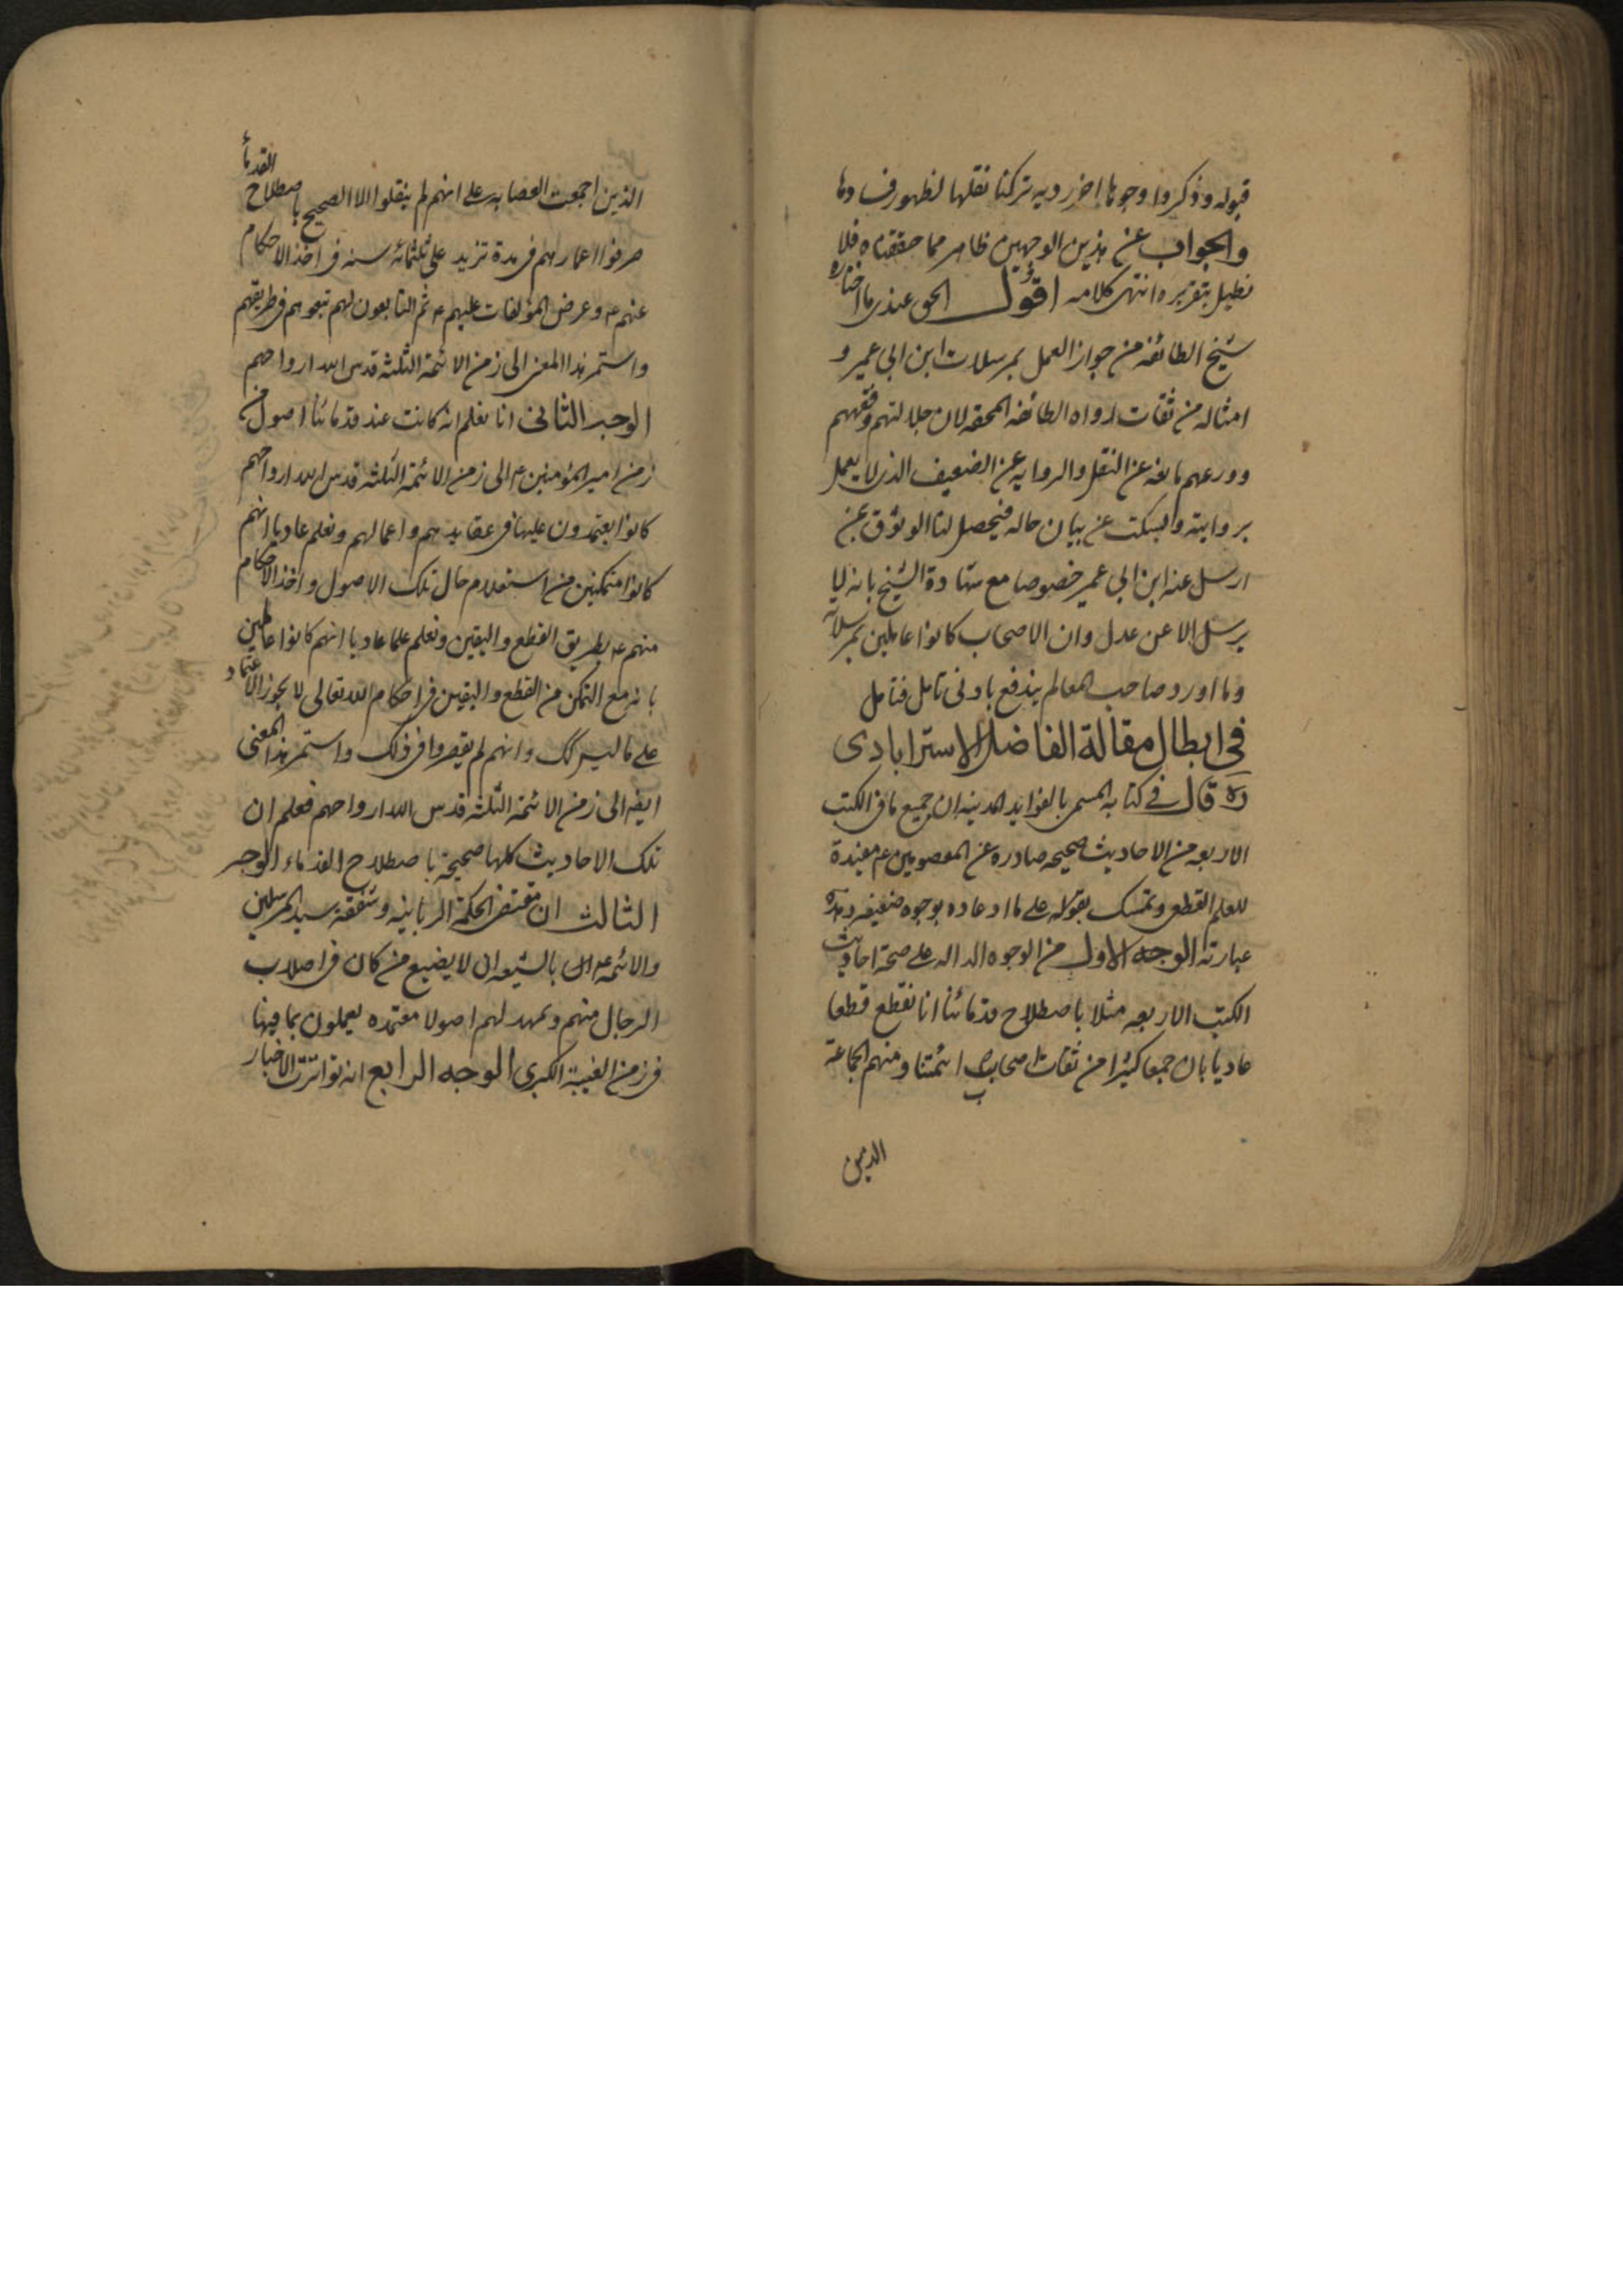 قبوله وذكروا وجوها اخر رديه تركنا نقلها لظهور فسادها
والجواب عن هذين الوجهين ظاهر مما حققناه فلا
نطيل بتقريره انتهى كلامه اقول الحق عندى ما اختاره
شيخ الطائفه من جواز العمل بمرسلات ابن ابى عمير و
امثاله من ثقات رواه الطائفه المحقه لان جلالتهم وفقههم
وورعهم مانعه عن النقل والروايه عن الضعيف الذى لا يعمل
بروايته والسكت عن بيان حاله فيحصل لنا الوثوق بمن
ارسل عنه ابن ابى عمير خصوصا مع شهادة الشيخ بانه لا
يرسل الا عن عدل وان الاصحاب كانوا عاملين بمرسلاته
وما اورد صاحب المعالم يندفع بادنى تامل فتامل
في ابطال مقالة الفاضل الاسترابادى
ره قال في كتابه المسمى بالفوايد المدينه ان جميع ما فى الكتب
الاربعه من الاحاديث صحيحه صادره عن المعصومين ع مفيدة
للعلم القطعى وتمسك بقوله على ما ادعاه بوجوه ضعيفه وهذه
عبارته الوجه الاول من الوجوه الداله على صحة احاديث
الكتب الاربعه مثلا باصطلاح قدمائنا انا نقطع قطعا
عاديا بان جمعا كثيرا من ثقات اصحاب ائمتنا ومنهم الجماعة
الذين
الذين اجمعت العصابه على انهم لم ينقلوا الا الصحيح باصطلاح القدماء
صرفوا اعمارهم فى مدة تزيد على ثلثمائه سنه فى اخذ الاحكام
عنهم ع وعرض المؤلفات عليهم ع ثم التابعون لهم تبعوهم فى طريقتهم
واستمر هذا المعنى الى زمن الائمة الثلثه قدس الله ارواحهم
الوجه الثانى انا نعلم انه كانت عند قدمائنا اصول فى
زمن امير المؤمنين ع الى زمن الائمة الثلثه قدس الله ارواحهم
كانوا يعتمدون عليها فى عقايدهم واعمالهم ونعلم عاديا انهم
كانوا متمكنين من استعلام حال تلك الاصول واخذ الاحكام
منهم ع بطريق القطع واليقين ونعلم علما عاديا انهم كانوا عاملين
بانه مع التمكن من القطع واليقين فى احكام الله تعالى لا يجوز الاعتماد
على ما ليس كك وانهم لم يقصروا فى ذلك واستمر هذا المعنى
ايضه الى زمن الائمة الثلثه قدس الله ارواحهم فعلم ان
تلك الاحاديث كلها صحيحة باصطلاح القدماء الوجه
الثالث ان مقتضى الحكمة الربانيه وشفقة سيد المرسلين
والائمه ع بالشيعه ان لا يضيع من كان فى اصلاب
الرجال منهم وتمهد لهم اصولا معتمده يعملون بما فيها
فى زمن الغيبة الكبرى الوجه الرابع انه تواترت الاخبار